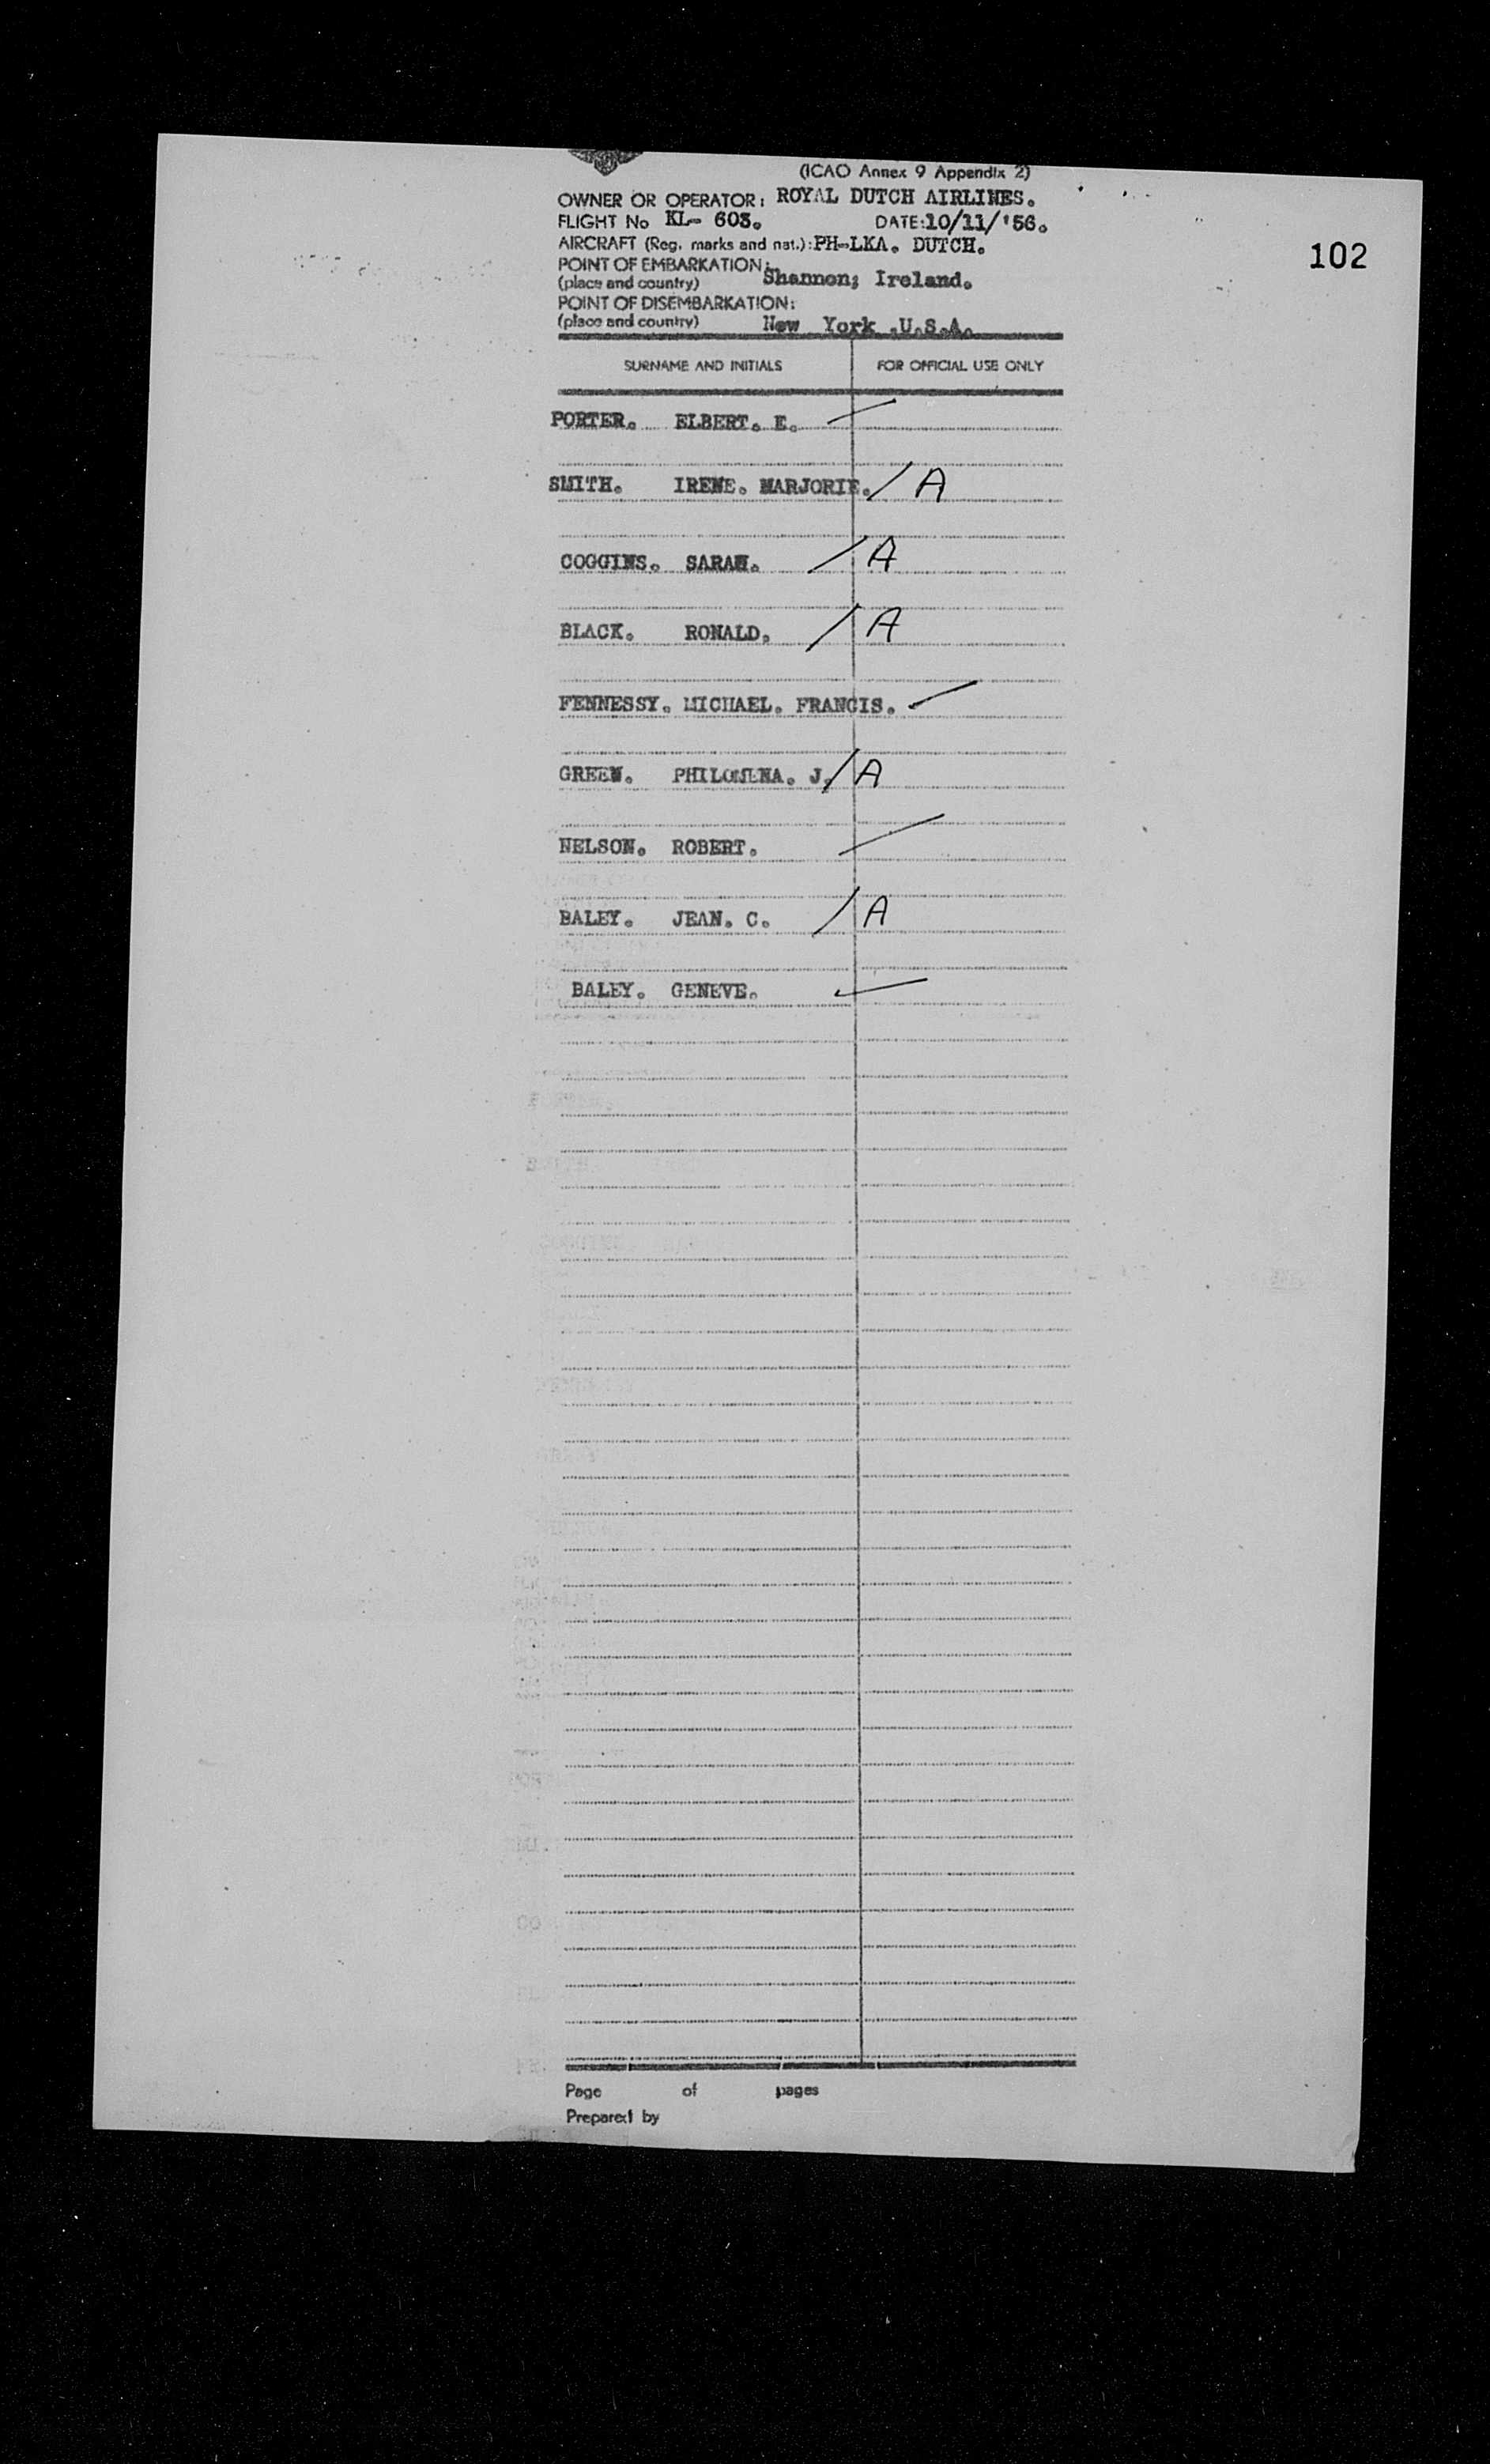 (ICAO Annex 9 Appendix 2)
OWNER OR OPERATOR: ROYAL DUTCH AIRLINES.
FLIGHT No KL- 603. DATE: 10/11/'56.
102
AIRCRAFT (Reg. marks and nat.): PH-LKA. DUTCH.
POINT OF EMBARKATION:
(place and country) Shannon; Ireland.
POINT OF DISEMBARKATION:
(place and country) New York .U.S.A.
SURNAME AND INITIALS FOR OFFICIAL USE ONLY
PORTER. ELBERT. E.
SMITH. IRENE. MARJORIE. / A
COGGINS. SARAH. / A
BLACK. RONALD. / A
FENNESSY. MICHAEL. FRANCIS.
GREEN. PHILOMENA. J. / A
NELSON. ROBERT.
BALEY. JEAN. C. / A
BALEY. GENEVE.
Page of pages
Prepared by